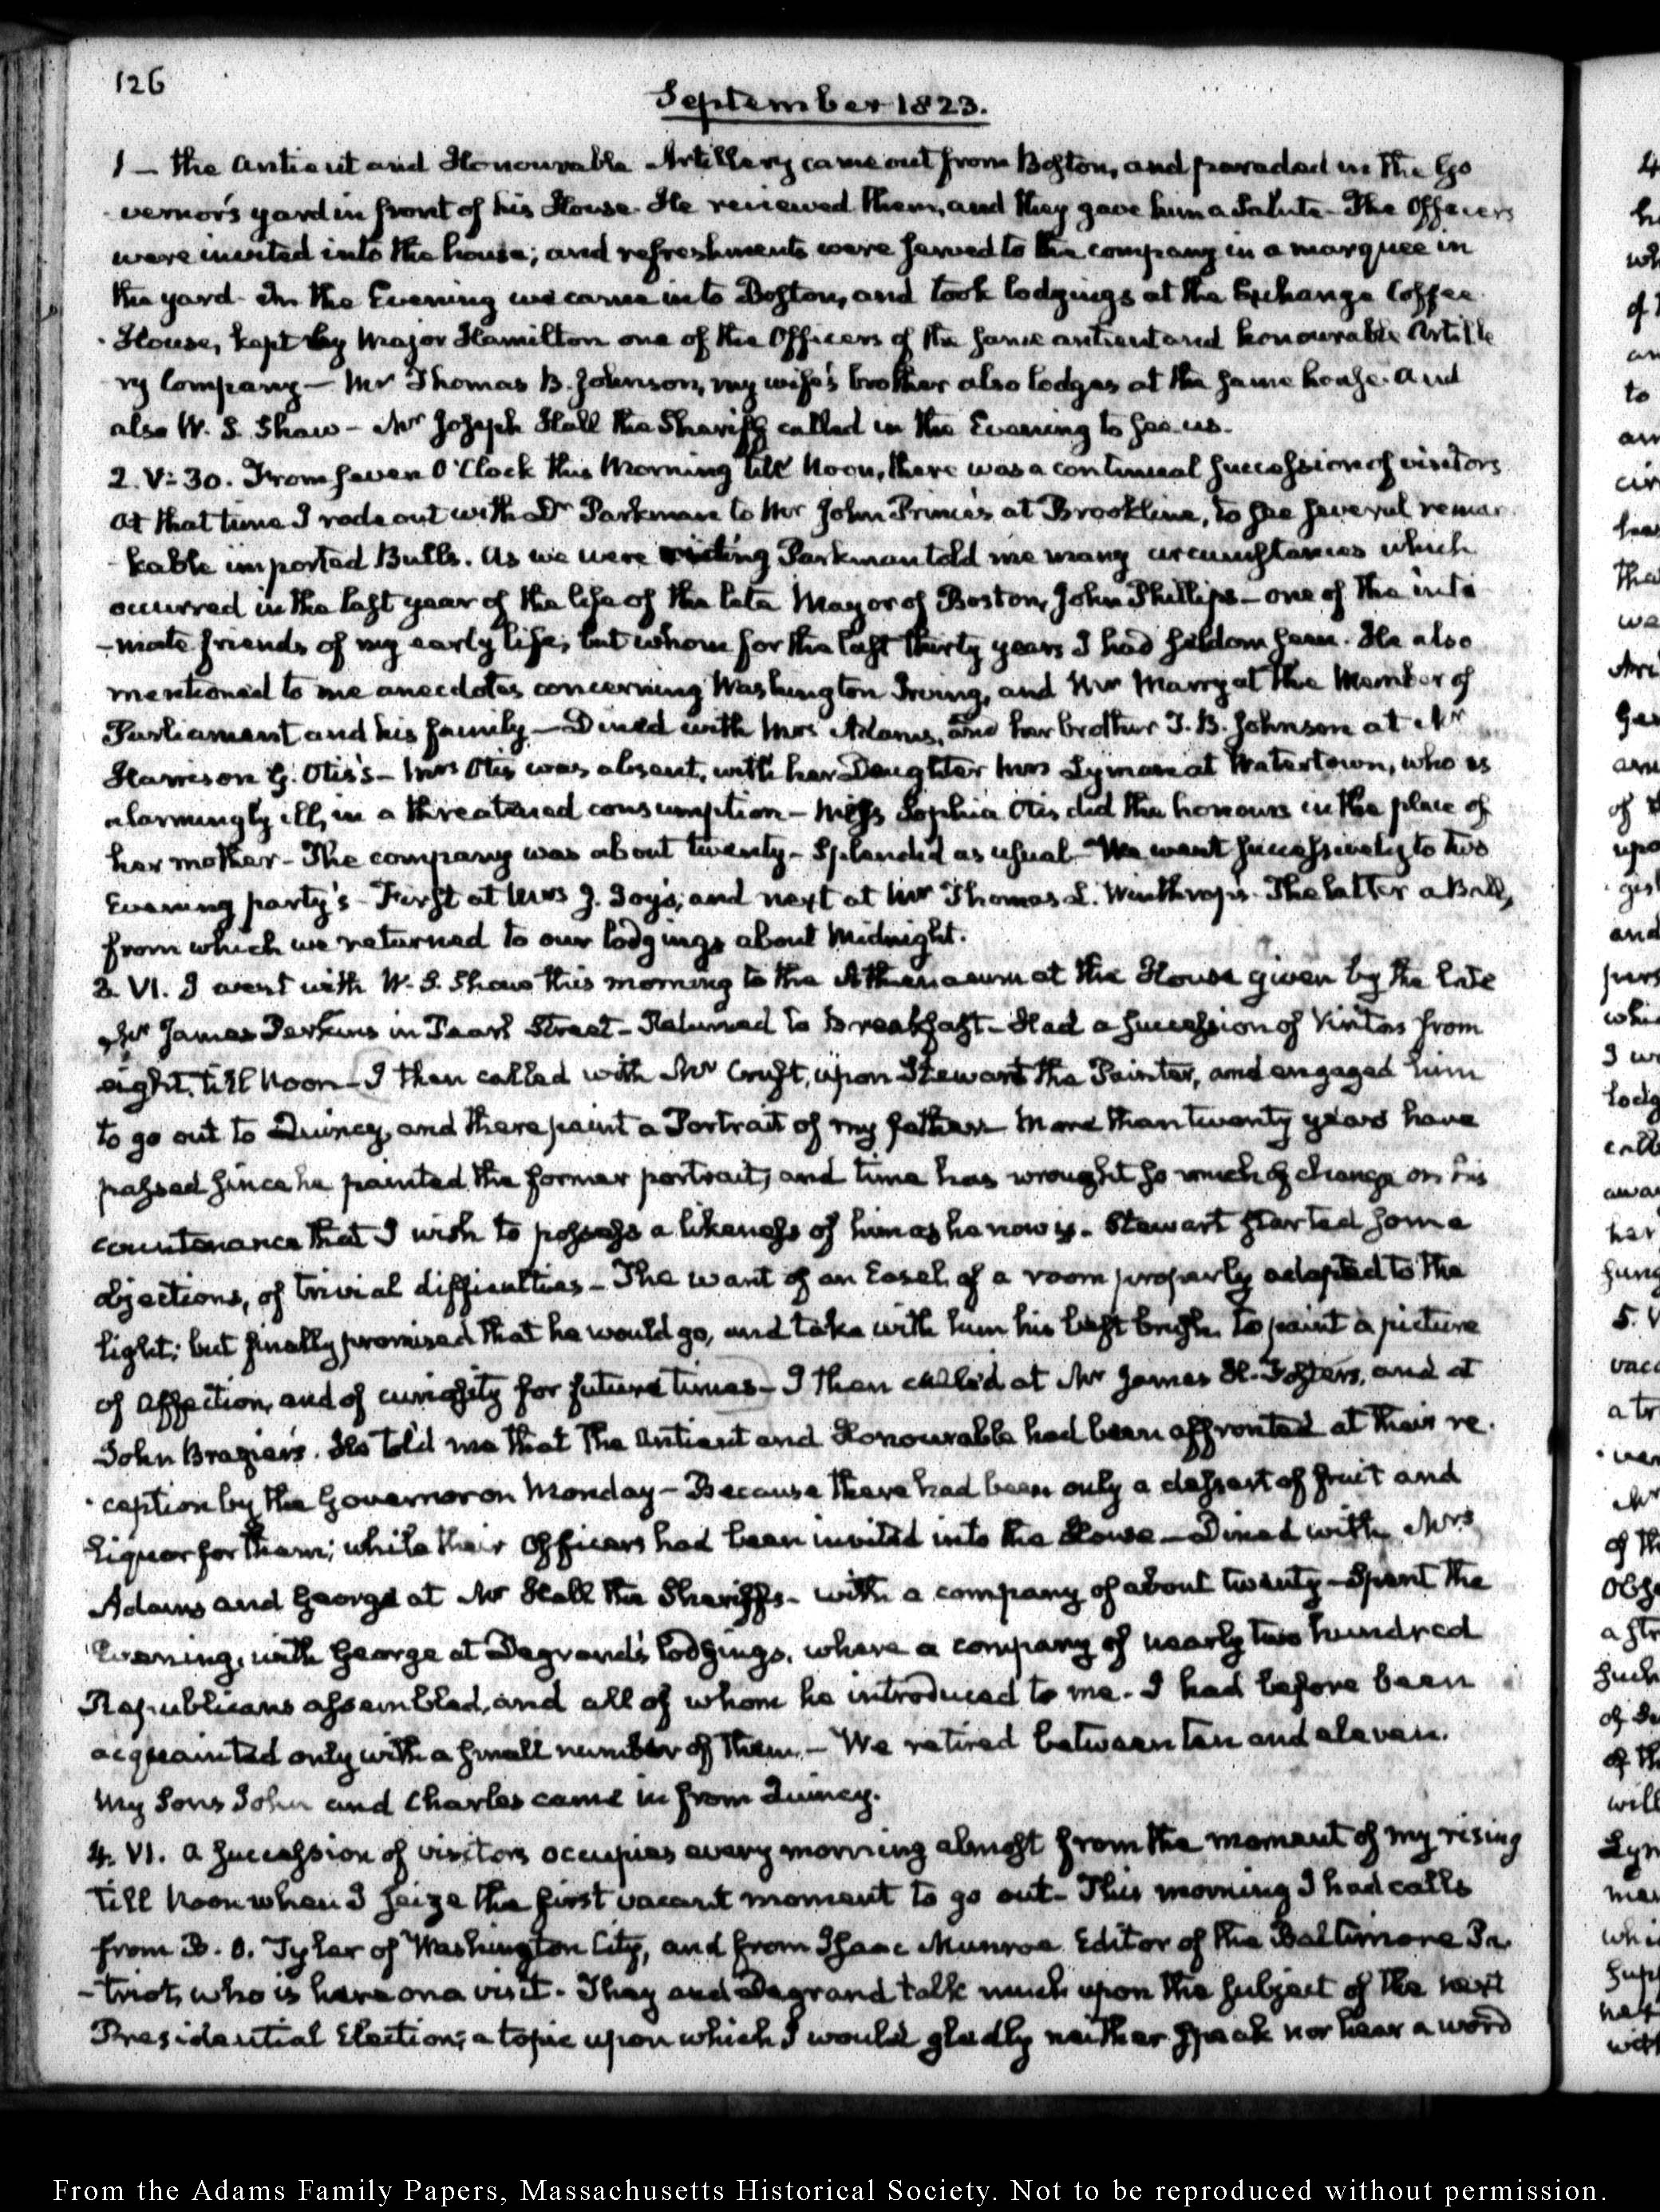 126
September 1823.
1 — the Antient and Honourable Artillery came out from Boston, and paraded in the Go
vernor's yard in front of his House. He reviewed them, and they gave him a Salute. The Officers
were invited into the house; and refreshments were served to the company in a marquee in
the yard. In the Evening we came into Boston, and took lodgings at the Exchange Coffee
House, kept by Major Hamilton one of the Officers of the same antient and honourable Artille
ry Company — Mr Thomas B. Johnson, my wife's brother also lodges at the same house. And
also W. S. Shaw — Mr Joseph Hall the Sheriff called in the Evening to see us.
2. V:30. From seven O'Clock this Morning till Noon, there was a continual succession of visitors
At that time I rode out with Dr Parkman to Mr John Prince's at Brookline, to see several remar
kable imported Bulls. As we were riding Parkman told me many circumstances which
occurred in the last year of the life of the late Mayor of Boston, John Phillips — one of the inti
-mate friends of my early life, but whom for the last thirty years I had seldom seen. He also
mentioned to me anecdotes concerning Washington Irving, and Mr Marryat the Member of
Parliament and his family — Dined with Mrs Adams, and her brother T. B. Johnson at Mr
Harrison G. Otis's — Mrs Otis was absent, with her Daughter Mrs Lyman at Watertown, who is
alarmingly ill, in a threatened consumption — Miss Sophia Otis did the honours in the place of
her mother — The company was about twenty — Splendid as usual — We went successively to two
Evening party's — First at Mrs J. Joy's, and next at Mr Thomas L. Winthrop's. The latter a Ball,
from which we returned to our lodgings about Midnight.
3. VI. I went with W. S. Shaw this morning to the Athenaeum at the House given by the late
Mr James Perkins in Pearl Street — Returned to Breakfast — Had a succession of Visitors from
eight till Noon — I then called with Mr Cruft, upon Stewart the Painter, and engaged him
to go out to Quincy, and there paint a Portrait of my father — More than twenty years have
passed since he painted the former portrait, and time has wrought so much of change on his
countenance that I wish to possess a likeness of him as he now is. Stewart started some
objections, of trivial difficulties — The want of an Easel, of a room properly adapted to the
light; but finally promised that he would go, and take with him his best brush, to paint a picture
of affection, and of curiosity for future times — I then called at Mr James H. Foster's, and at
John Brazier's. He told me that the Antient and Honourable had been affronted at their re
ception by the Governor on Monday — Because there had been only a dessert of fruit and
Liquor for them; while their Officers had been invited into the House — Dined with Mrs
Adams and George at Mr Hall the Sheriff's — with a company of about twenty — Spent the
Evening, with George at Degrand's lodgings, where a company of nearly two hundred
Republicans assembled, and all of whom he introduced to me. I had before been
acquainted only with a small number of them. — We retired between ten and eleven.
My Sons John and Charles came in from Quincy.
4. VI. A succession of visitors occupies every morning almost from the moment of my rising
till Noon when I seize the first vacant moment to go out — This morning I had calls
from B. O. Tyler of Washington City, and from Isaac Munroe Editor of the Baltimore Pa
-triot, who is here on a visit. They and Degrand talk much upon the subject of the next
Presidential Election; a topic upon which I would gladly neither speak nor hear a word
From the Adams Family Papers, Massachusetts Historical Society. Not to be reproduced without permission.